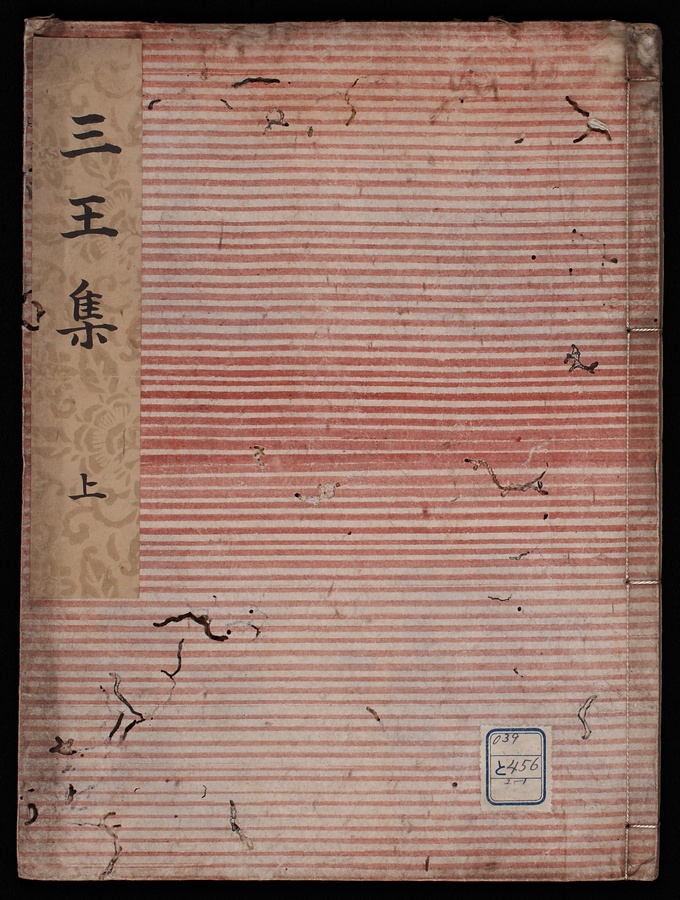 三王集
上
039
と456
2-1